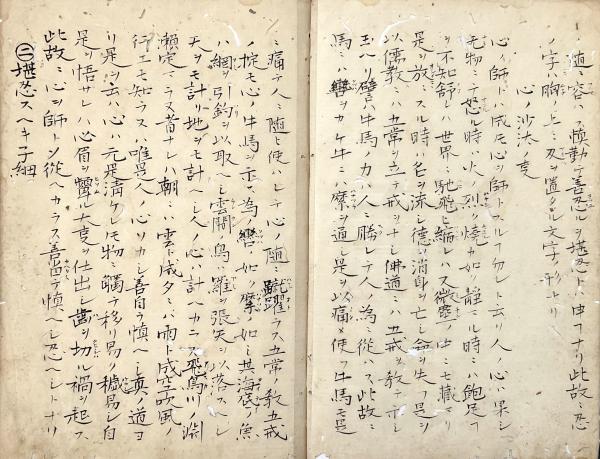 ニ随ニ容ハス慎勤テ善忍ルヲ堪忍トハ申フナリ此故ニ忍
ノ字ハ胸上ニ刄ヲ置タル文字ノ形ナリ
心ノ沙汰ノ叓
心ノ師トハ成モ心ヲ師トスルフ勿レト云リ人ノ心ハ果シ
无物ニテ怒ル時ハ火ノ烈ク焼カ如ク静マル時ニハ飽足フ
ヲ不知舒レハ世界ニ馳飛ヒ縮レハ微塵ノ中ニモ蔵マリ
是ヲ放ニスル時ハ名ヲ流シ徳ヲ消身ヲ亡シ命ヲ失フ是ヲ
以儒教ニハ五常ヲ立テ戒ヲナシ佛道ニハ五戒ヲ教テ示シ
玉ハリ譬ハ牛馬ノ力ハ人ニ勝レテ人ノ為ニ從ハス此故ニ
馬ニ轡ヲカケ牛ニハ 通シ是ヲ以痛メ使フ牛馬モ是
ニ痛テ人ニ随ヒ使ハレテ心ノ随ニ 躍ラス五常ノ教五戒
ノ掟モ心ノ牛馬ヲ示ス為ノ轡ノ如ク ノ如シ其海底ノ魚
ハ網ヲ引釣ヲ以取ヘシ雲間ノ鳥ハ羅ヲ張矢ヲ以落スヘシ
天ヲモ計リ地ヲモ計ヘシ人ノ心ハ計ヘカニス飛鳥川ノ淵
瀬定マラヌ昔ナレハ朝ニハ雲ト成夕ハ雨ト成空吹風ノ
行エモ知ラスハ唯是人ノ心ソカシ善自ラ慎ヘシ真ノ道ヨ
リ是ヲ云ハ心ハ元是清ケレモ物ニ觸テ移リ易ク穢易シ自
是ヲ悟サレハ心眉ヲ 大叓ヲ仕出シ歯ヲ切ル禍ヲ起ス
此故ニ心ヲ師トシ従ヘカラス善 テ慎ヘシ忍ヘシトナリ
㊁堪忍スヘキ子細